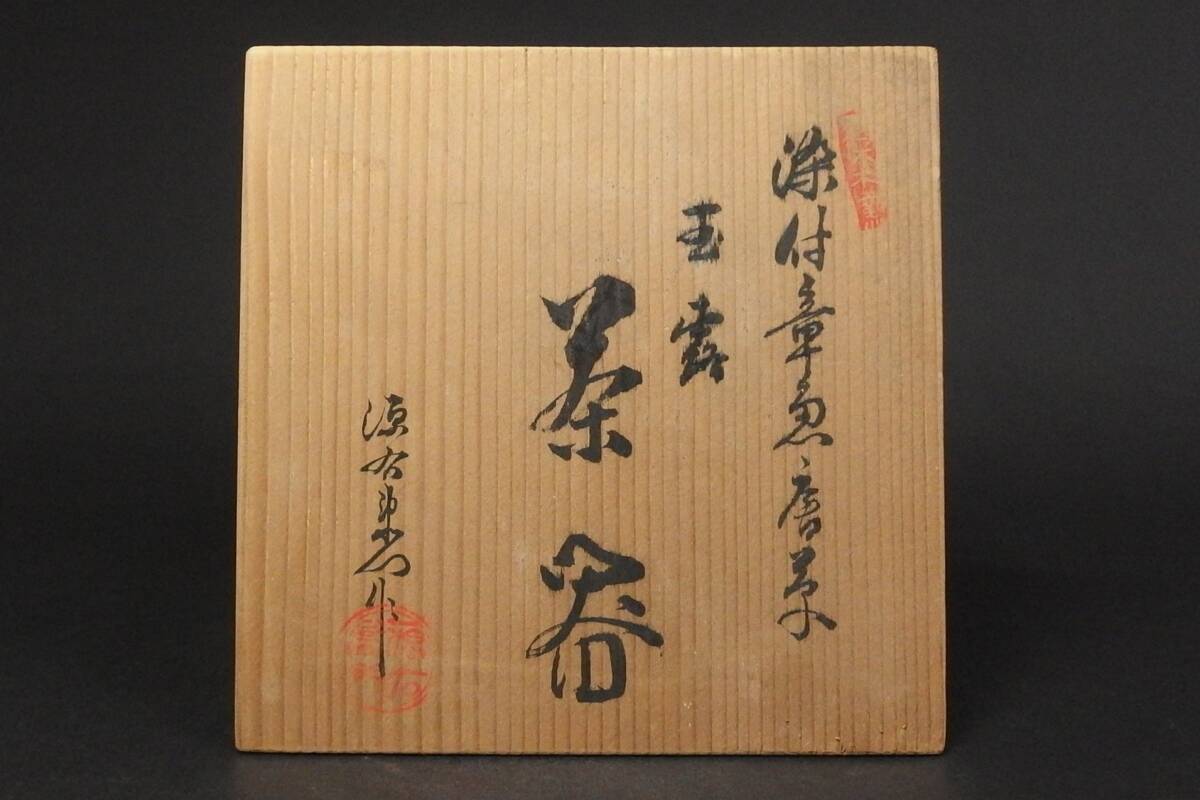 染付章魚唐草
玉露
茶器
源右衛門作